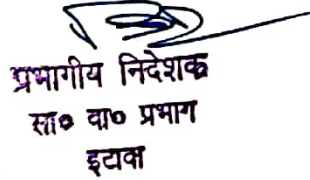 प्रभागीय निदेशक
सा० वा० प्रभाग
इटावा